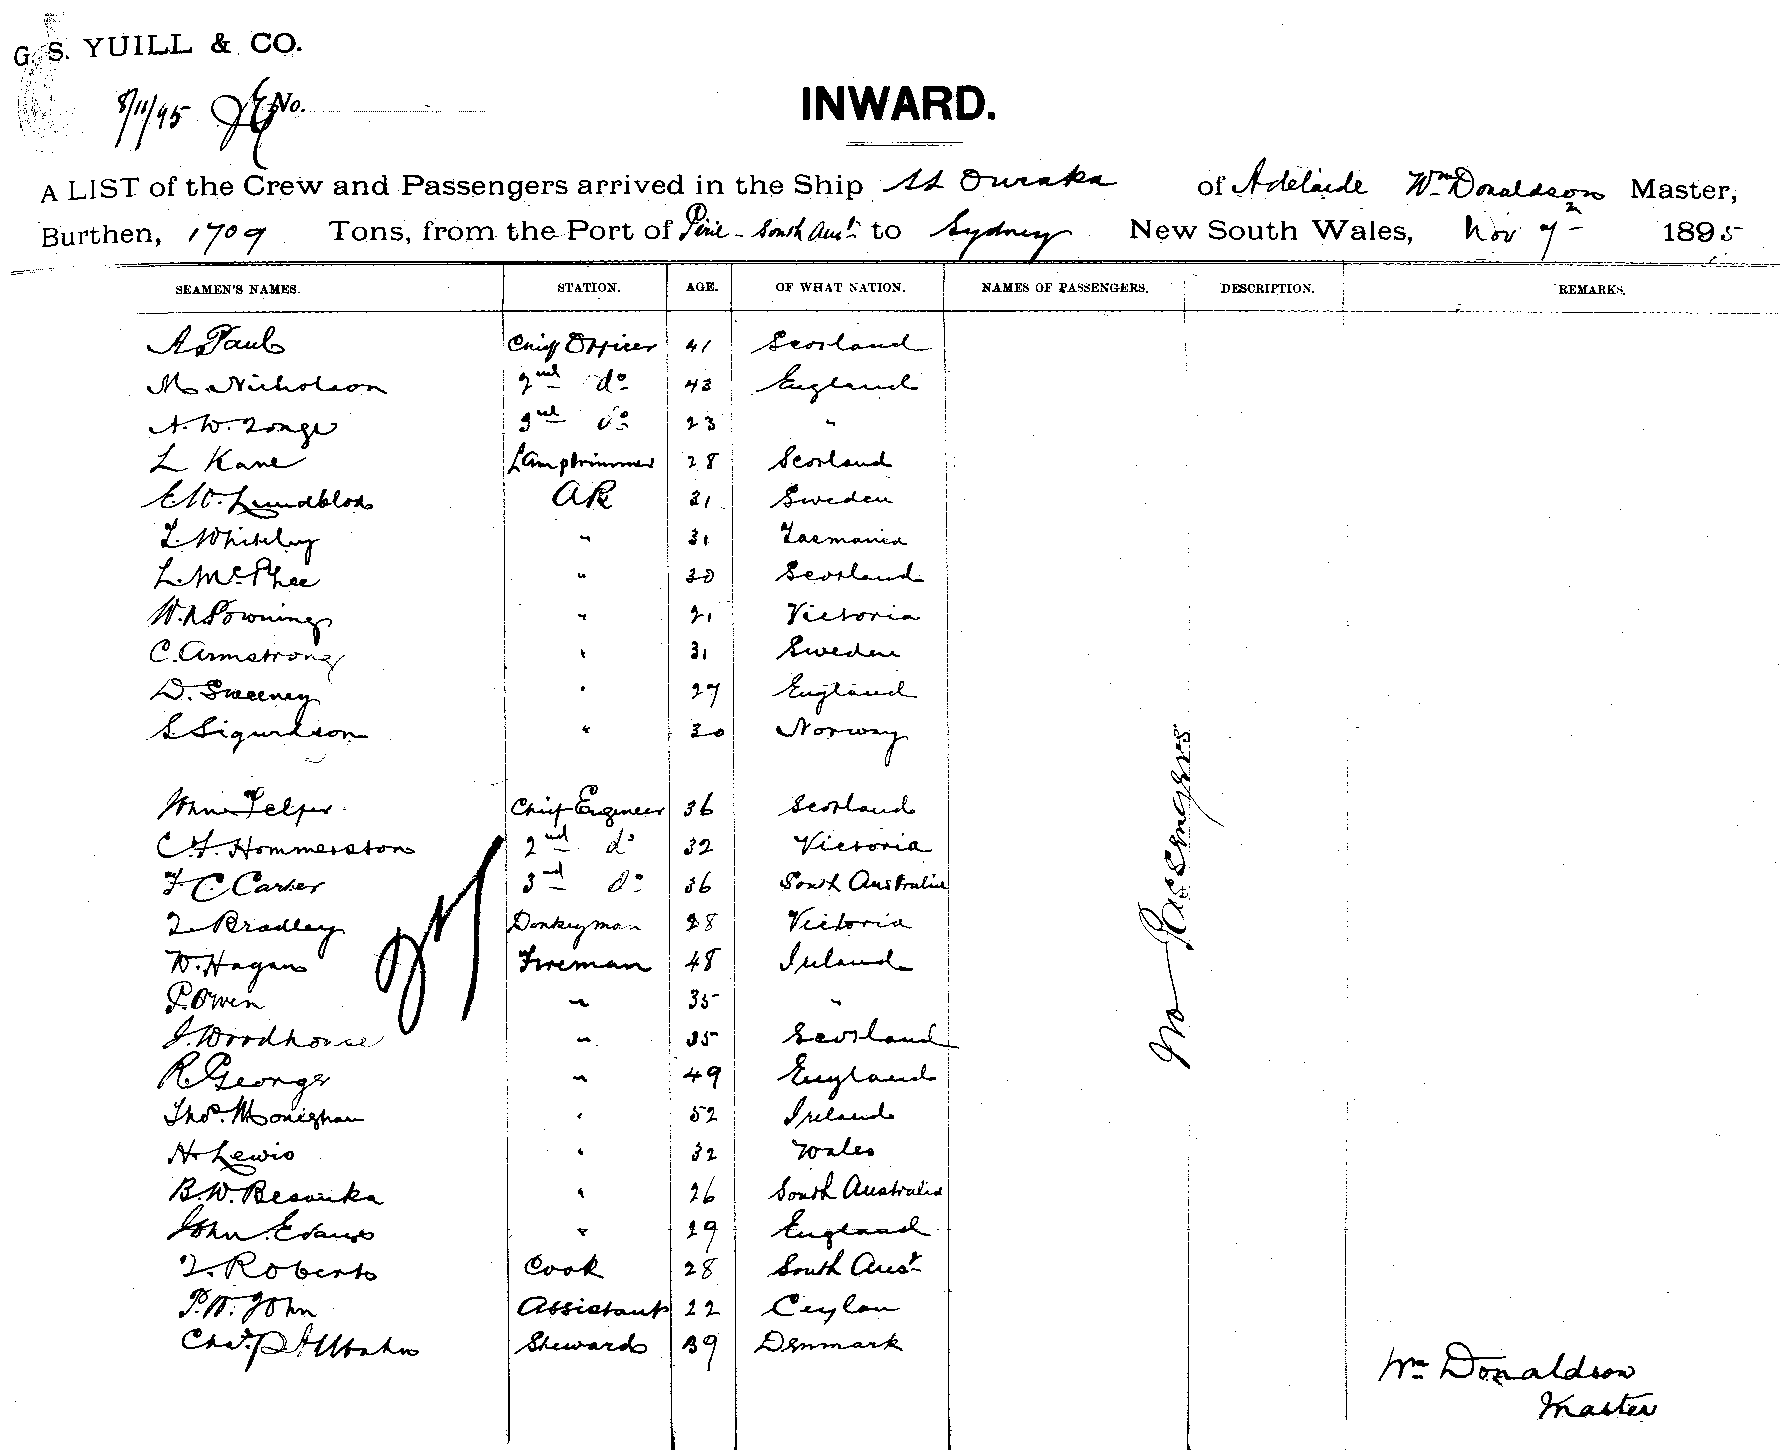 G. S. YUILL & CO.
8/11/95 No.
INWARD.
A LIST of the Crew and Passengers arrived in the Ship SS Ouraka of Adelaide Wm Donaldson Master,
Burthen, 1709 Tons, from the Port of Pirie - South Aust to Sydney New South Wales, Nov 7th 1895
SEAMEN'S NAMES. STATION. AGE. OF WHAT NATION. NAMES OF PASSENGERS. DESCRIPTION. REMARKS.
A Paul Chief Officer 41 Scotland
M Nicholson 2nd do 43 England
A. W. Tonge 3rd do 23 "
L Kane Lamptrimmer 28 Scotland
Lundblad AB 31 Sweden
T. Whiteley " 31 Tasmania
L. McPhee " 30 Scotland
W. Downing " 21 Victoria
C. Armstrong " 31 Sweden
D. Sweeney " 27 England
S Sigurdson " 30 Norway
John Telfer Chief Engineer 36 Scotland
C. F. Hommerston 2nd do 32 Victoria
F C. Carter 3rd do 36 South Australia
T. Bradley Donkeyman 28 Victoria
W. Hagan Fireman 48 Ireland
P. Owen " 35 "
J. Woodhouse " 35 Scotland
R. George " 49 England
Thos. Monighan " 52 Ireland
H Lewis " 32 Wales
B. W. " 26 South Australia
John Evans " 29 England
T. Roberts Cook 28 South Aust
P. W. John Assistant 22 Ceylon
Chas. Steward 39 Denmark
No Passengers
Wm Donaldson
Master